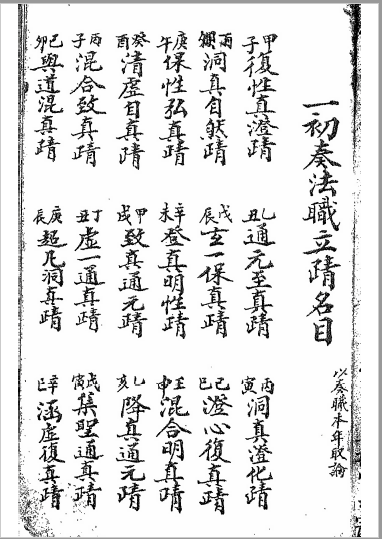 一初奏法職立靖名目 以奏職本年取論
甲子復性真澄靖 乙丑通元至真靖 丙寅洞真澄化靖
洞真自然靖 戊辰玄一保真靖 己巳澄心復真靖
庚午保性弘真靖 辛未登真明性靖 壬申混合明真靖
癸酉清虛自真靖 甲戌致真通元靖 乙亥降真通元靖
丙子混合致真靖 丁丑虛一通真靖 戊寅集聖通真靖
己卯與道混真靖 庚辰超凡洞真靖 辛巳涵虛復真靖